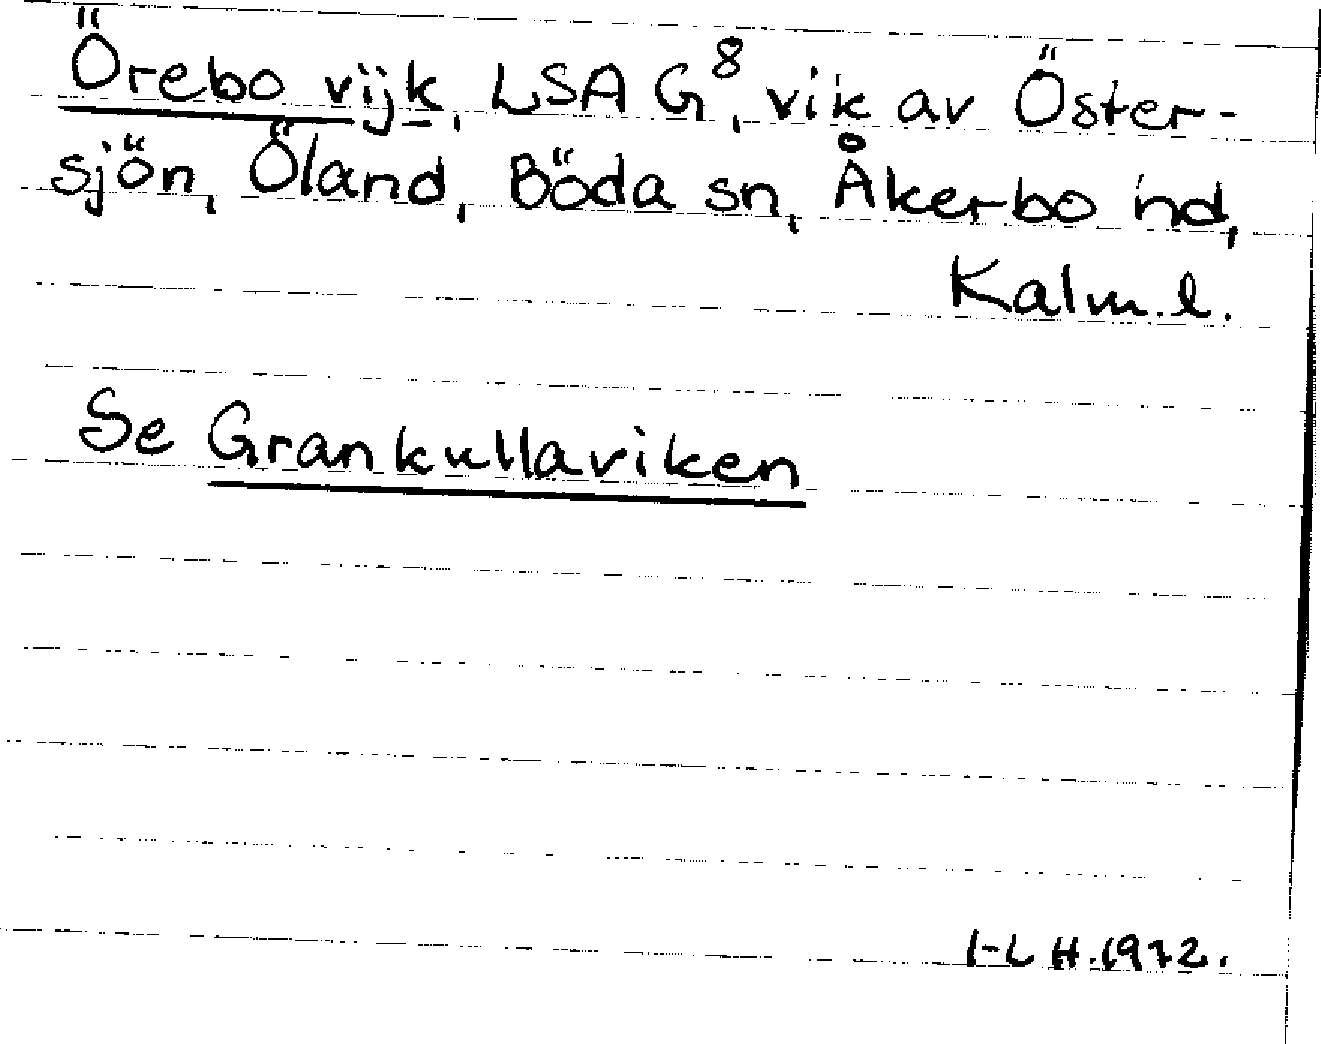 Örebo vijk, LSA G⁸, vik av Öster-
sjön, Öland, Böda sn, Åkerbo hd,
Kalm. l.
Se Grankullaviken
I-L H. 1972.